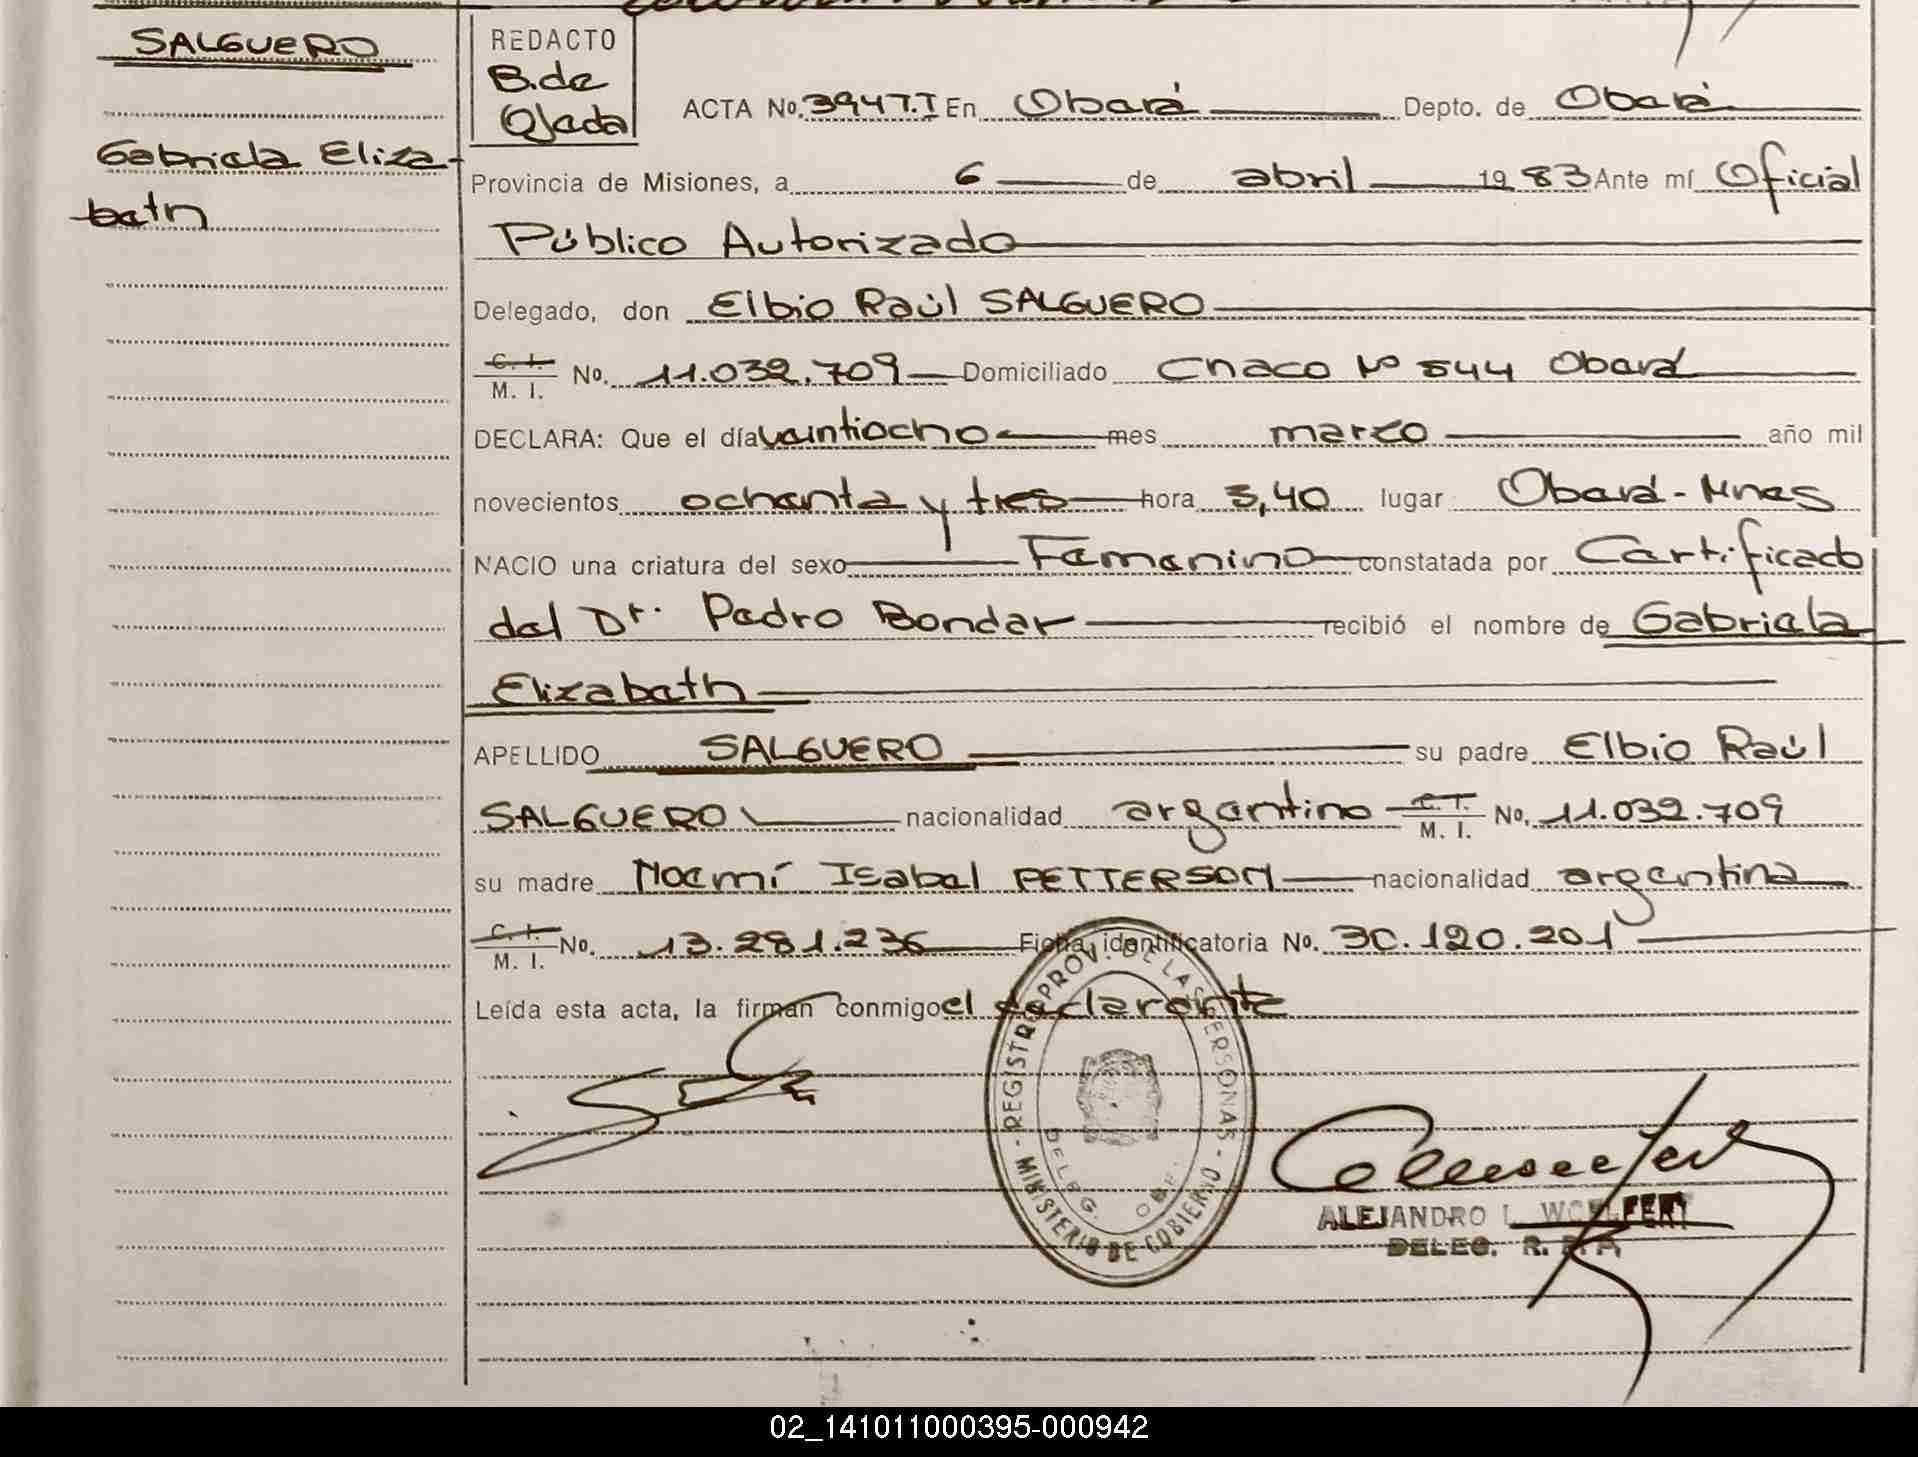 SALGUERO
Gabriela Eliza-
beth
REDACTO
B. de
Ojeda
ACTA No. 3947.T En Oberá Depto. de Oberá
Provincia de Misiones, a 6 de abril 1983 Ante mí Oficial
Público Autorizado
Delegado, don Elbio Raúl SALGUERO
C. I. / M. I. No. 11.032.709 Domiciliado Chaco Nº 544 Oberá
DECLARA: Que el día veintiocho mes marzo año mil
novecientos ochenta y tres hora 3,40 lugar Oberá - Mnes
NACIO una criatura del sexo Femenino constatada por Certificado
del Dr. Pedro Bondar recibió el nombre de Gabriela
Elizabeth
APELLIDO SALGUERO su padre Elbio Raúl
SALGUERO nacionalidad argentino C. I. / M. I. No. 11.032.709
su madre Noemí Isabel PETTERSON nacionalidad argentina
C. I. / M. I. No. 13.281.236 Ficha identificatoria No. 30.120.201
Leída esta acta, la firman conmigo el declarante
REGISTRO PROV. DE LAS PERSONAS - MINISTERIO DE GOBIERNO -
DELEG.
ALEJANDRO L. WOELFERT
DELEG. R. P. P.
02_141011000395-000942